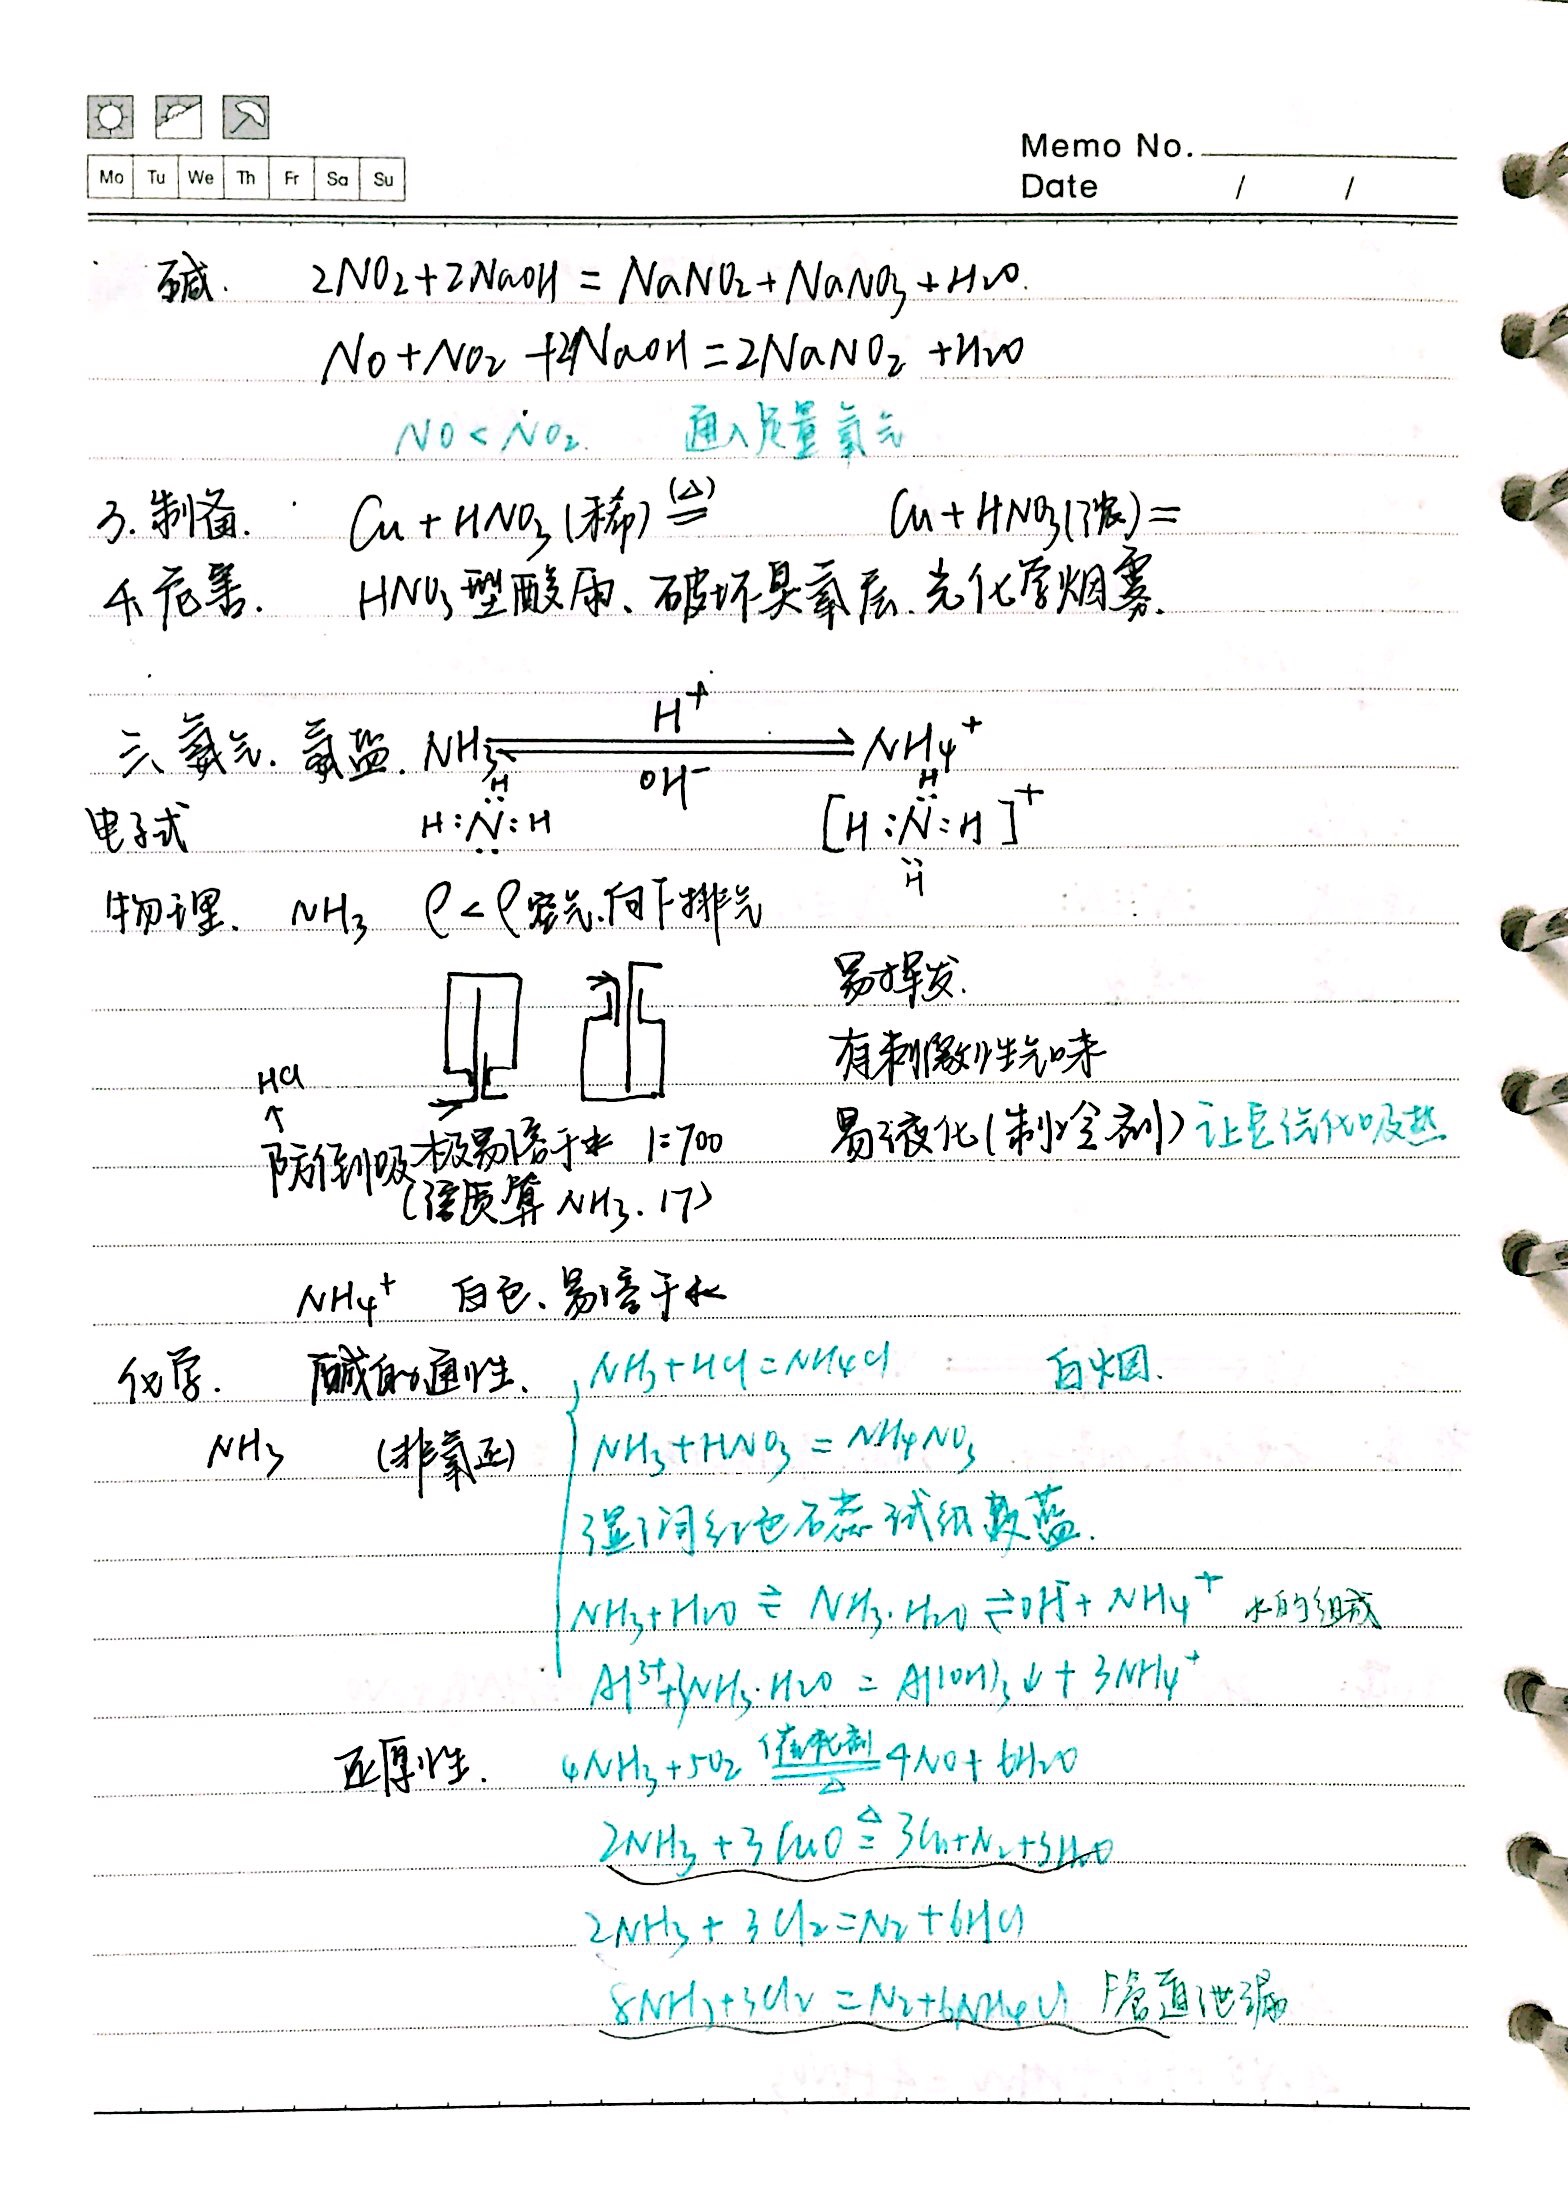 Mo Tu We Th Fr Sa Su
Memo No.
Date / /
碱. 2NO₂+2NaOH = NaNO₂+NaNO₃+H₂O.
NO+NO₂+2NaOH=2NaNO₂+H₂O
NO<NO₂. 通入足量氧气
3.制备. Cu+HNO₃(稀) (△)= Cu+HNO₃(浓)=
4.危害. HNO₃型酸雨、破坏臭氧层.光化学烟雾.
三、氨气.氨盐. NH₃ H⁺ ⇌ OH⁻ NH₄⁺
电子式 H:N:H H [H:N:H]⁺ H H
物理. NH₃ ρ<ρ空气.向下排气
易挥发.
有刺激性气味
HCl
↑
防倒吸 极易溶于水 1:700 易液化(制冷剂)让它汽化吸热
(溶质算NH₃.17)
NH₄⁺ 白色、易溶于水
化学. 碱的通性. NH₃+HCl=NH₄Cl 白烟.
NH₃ (非氧还) NH₃+HNO₃=NH₄NO₃
湿润红色石蕊试纸变蓝.
NH₃+H₂O ⇌ NH₃·H₂O ⇌ OH⁻+NH₄⁺ 水的组成
Al³⁺+3NH₃·H₂O = Al(OH)₃↓+3NH₄⁺
还原性. 4NH₃+5O₂ 催化剂=△ 4NO+6H₂O
2NH₃+3CuO △= 3Cu+N₂+3H₂O
2NH₃+3Cl₂=N₂+6HCl
8NH₃+3Cl₂=N₂+6NH₄Cl 管道泄漏